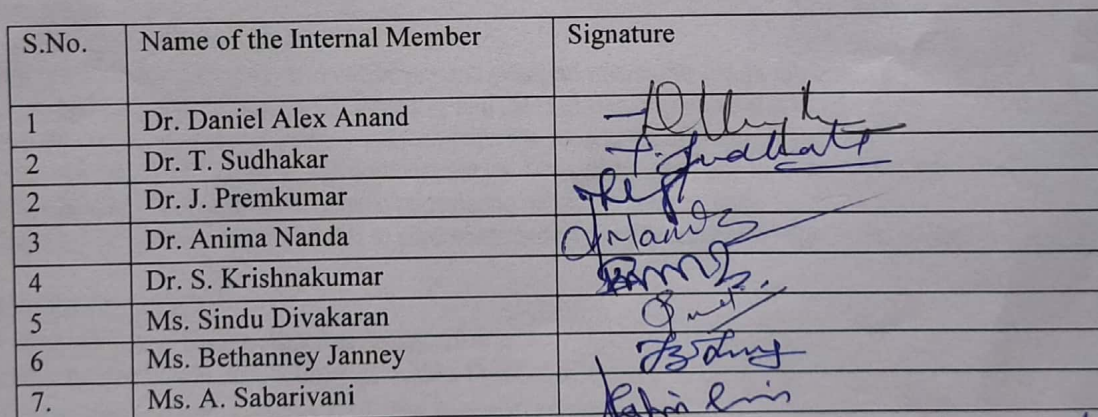 S.No. Name of the Internal Member Signature
1 Dr. Daniel Alex Anand
2 Dr. T. Sudhakar T. Sudhakar
2 Dr. J. Premkumar
3 Dr. Anima Nanda
4 Dr. S. Krishnakumar
5 Ms. Sindu Divakaran
6 Ms. Bethanney Janney
7. Ms. A. Sabarivani